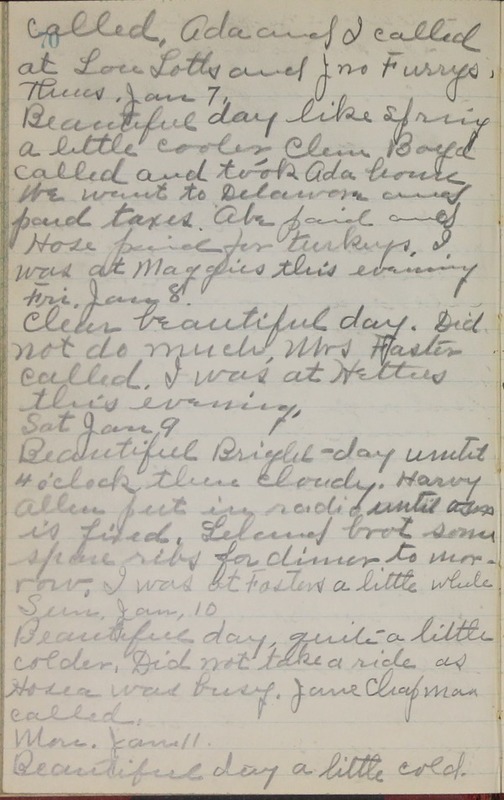 called. Ada and I called
at Lou Lotts and Jno Furrys.
Thurs. Jan 7.
Beautiful day like spring
a little cooler Clem Boyd
called and took Ada home
We went to Delaware and
paid taxes. Abe paid and
Hose paid for turkeys. I
was at Maggies this evening
Fri. Jan 8.
Clear beautiful day. Did
not do much, Mrs Foster
called. I was at Hetties
this evening.
Sat Jan 9
Beautiful Bright-day until
4 o'clock then cloudy. Harvy
Allen put in radio until ours
is fixed. Leland brot some
spare ribs for dinner to mor-
row. I was at Fosters a little while
Sun. Jan, 10
Beautiful day, quite a little
colder. Did not take a ride as
Hosea was busy. Jane Chapman
called.
Mon. Jan 11.
Beautiful day a little cold.